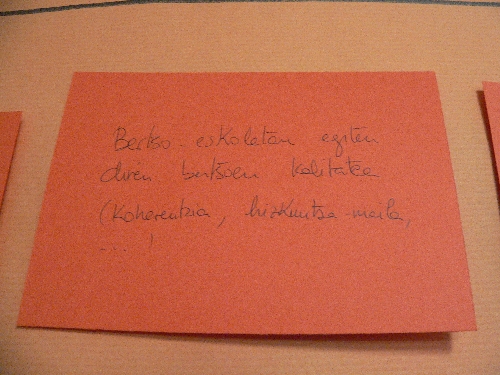 Bertso-eskoletan egiten
diren bertsoen kalitatea
(Koherentzia, hizkuntza-maila,
....)